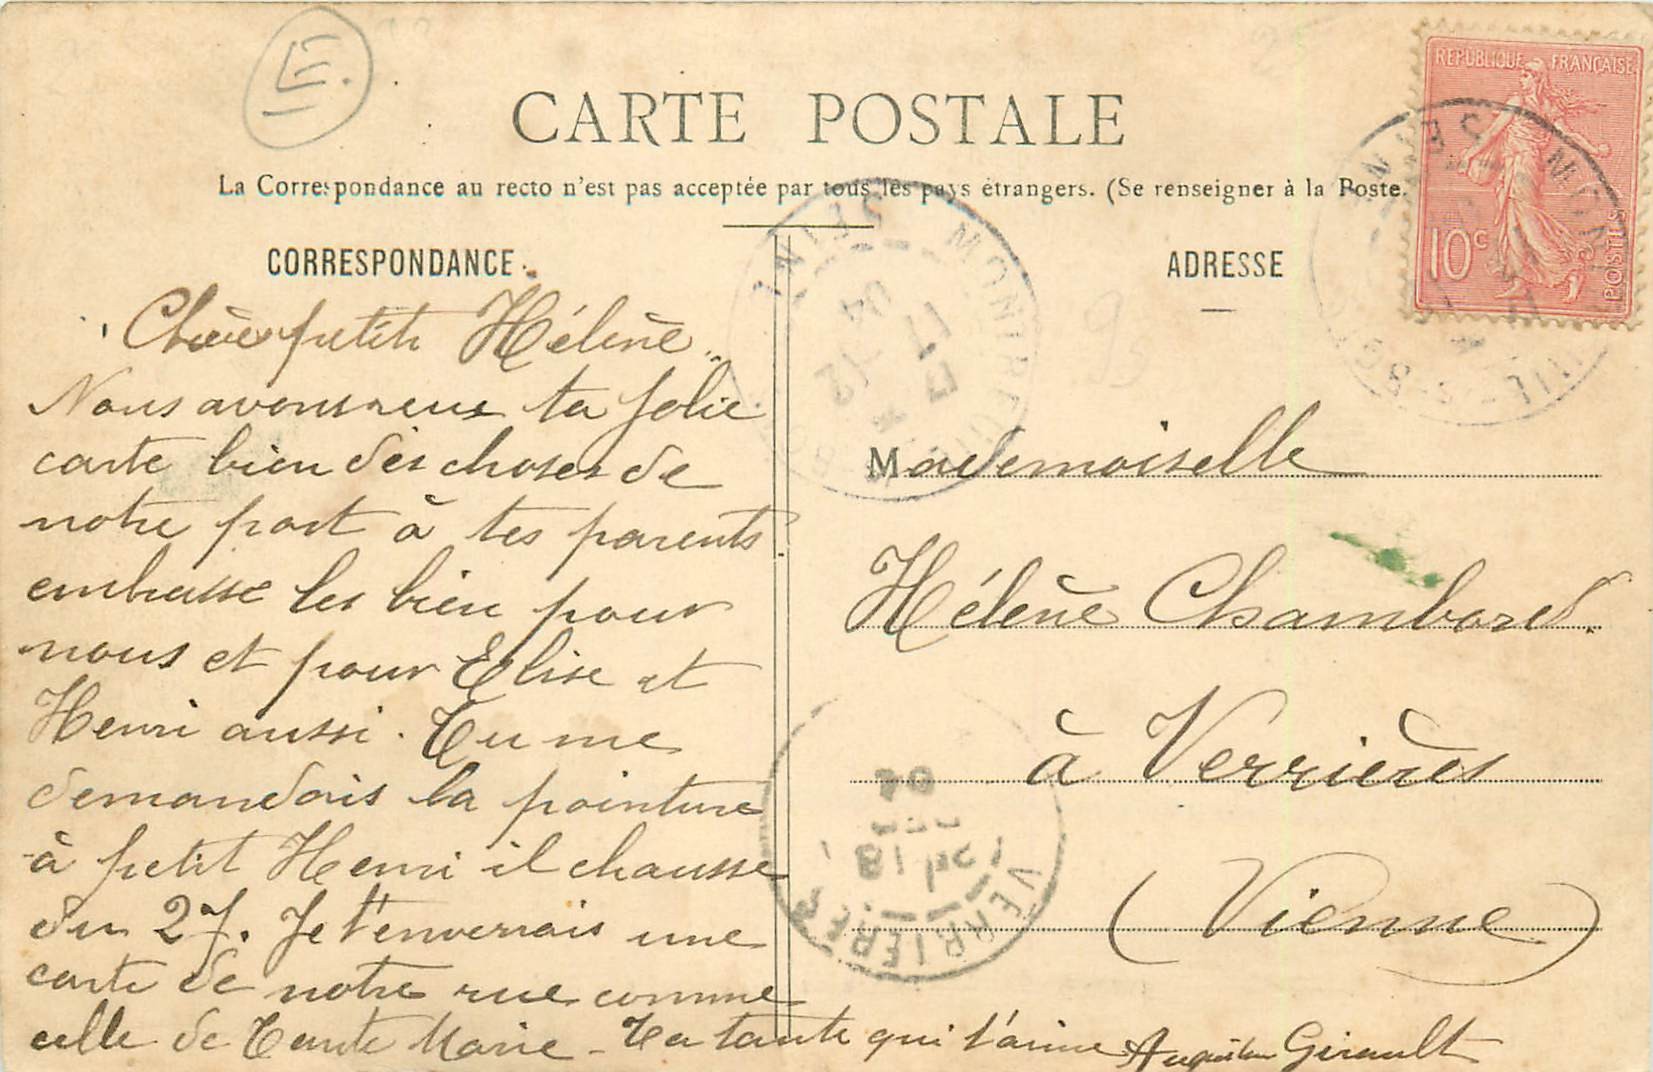 E.
CARTE POSTALE
La Correspondance au recto n'est pas acceptée par tous les pays étrangers. (Se renseigner à la Poste.
CORRESPONDANCE
petite Hélène
Nous avons reçu ta jolie
carte bien des choses de
notre part à tes parents
embrasse les bien pour
nous et pour Elise et
Henri aussi. Tu me
demandais la pointure
à petit Henri il chausse
du 27. Je t'enverrais une
carte de notre rue comme
celle de Tante Marie - Ta tante qui t'aime
Girault
ADRESSE
Mademoiselle
Hélène Chambord.
à Verrières
(Vienne)
REPUBLIQUE FRANÇAISE
10c
POSTES
SEINE
17
04
VERRIERES
18
04
95